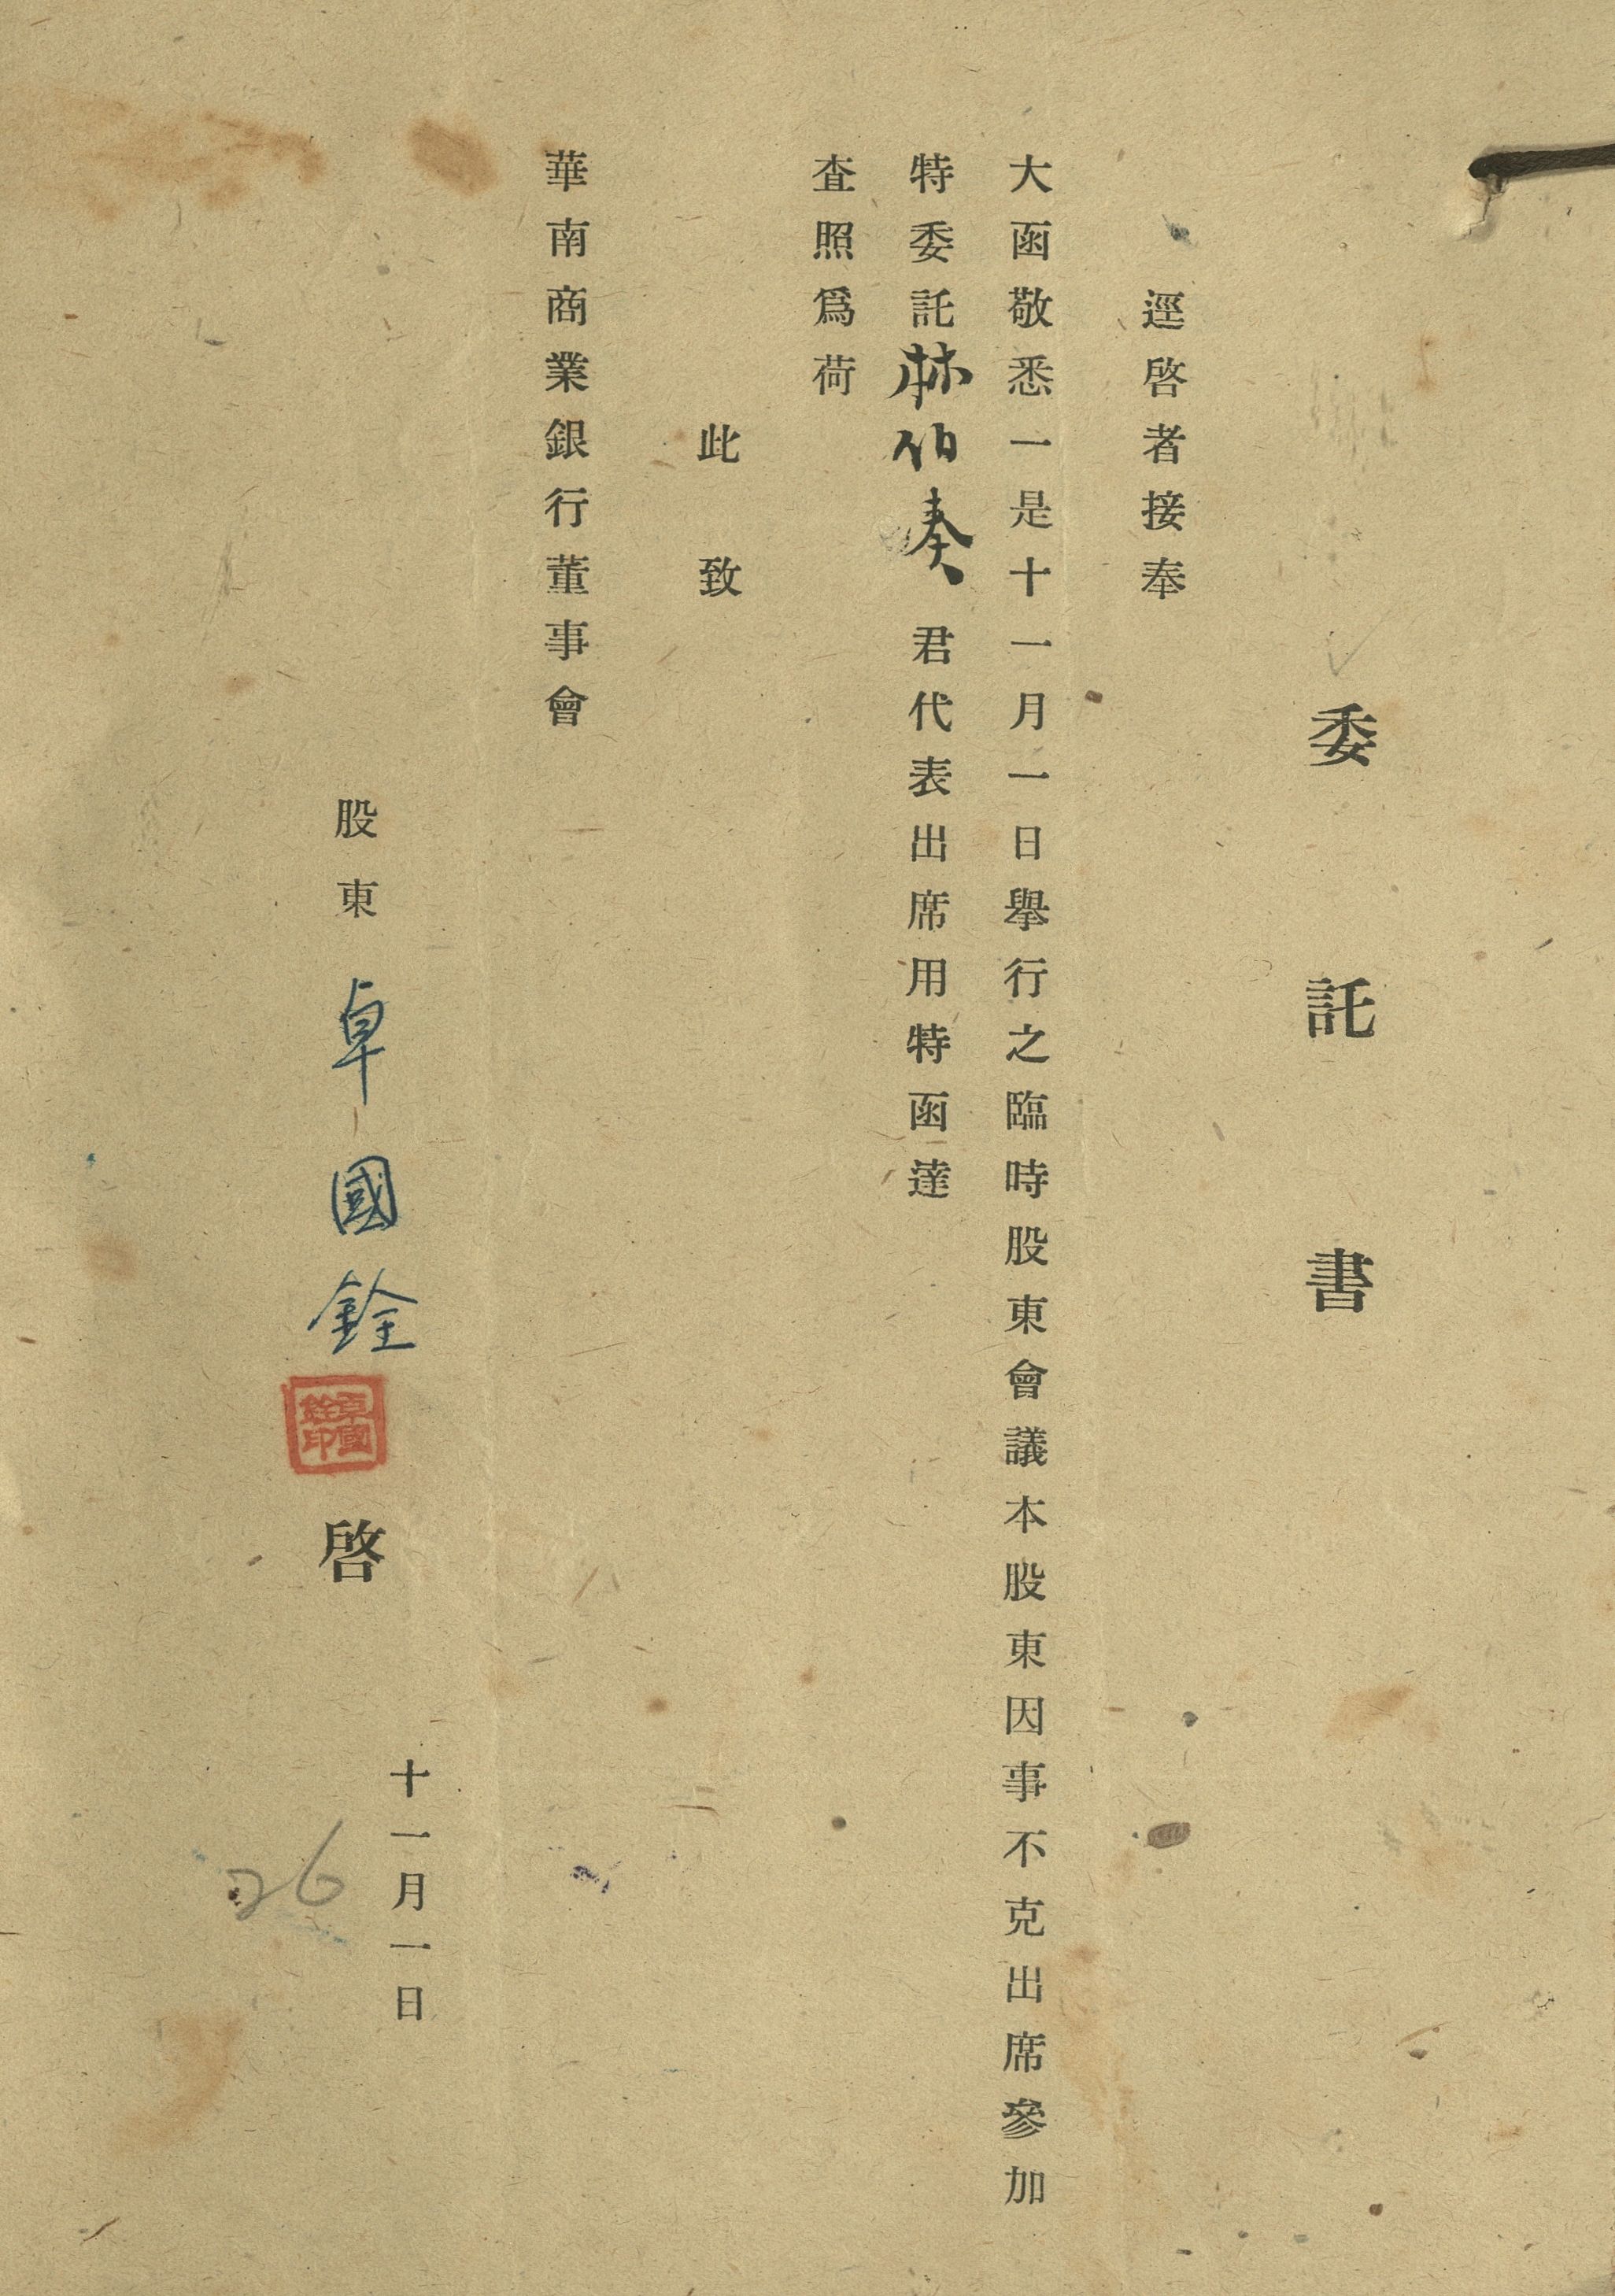 委託書
逕啓者接奉
大函敬悉一是十一月一日擧行之臨時股東會議本股東因事不克出席參加
特委託林伯奏君代表出席用特函達
査照爲荷
此致
華南商業銀行董事會
十一月一日
股東卓國銓啓
卓國銓印
26